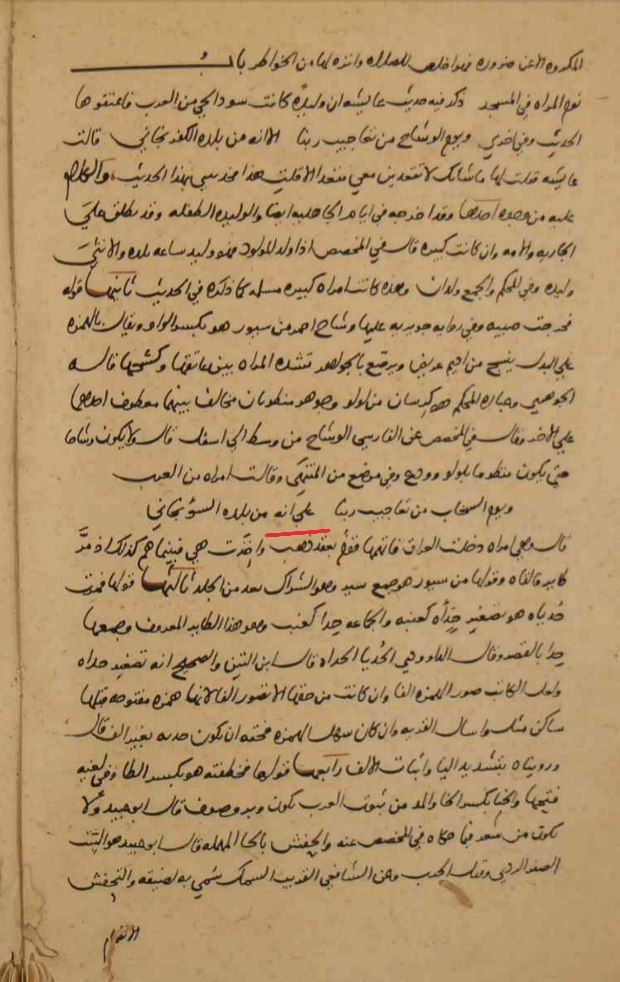 المكروه الا عن ضرورة فهو اخلص للصلاه وانزه لها من الخواطر باب
نوم المراه في المسجد ذكر فيه حديث عايشه ان وليدة كانت سودا لحي من العرب فاعتقوها
الحديث وفي اخره ويوم الوشاح من تعاجيب ربنا الا انه من بلدة الكفر نجاني قالت
عايشه قلت لها ما شانك لا تقعدين معي مقعدا الا قلت هذا فحدثتني بهذا الحديث والكلام
عليه من وجوه احدها وقد خرجه في ايام الجاهليه ايضا والوليده الطفله وقد يطلق علي
الجاريه والامه وان كانت كبيره قال في المخصص اذا ولد المولود فهو وليد ساعه تلده والانثي
وليده وفي المحكم والجمع ولدان وهذه كانت امراه كبيره مسلمه كما ذكره في الحديث ثانيها قوله
فخرجت صبيه وفي روايه جويريه عليها وشاح احمر من سيور هو بكسر الواو ويقال بالهمزه
علي البدل ينسج من اديم عريض ويرصع بالجواهر تشده المراه بين عاتقها وكشحها قاله
الجوهري وعباره المحكم هو كرسان من لولو وجوهر منظومان مخالف بينهما معطوف احدهما
علي الاخر وقال في المخصص عن الفارسي الوشاح من وسط الي اسفل قال ولا يكون وشاحا
حتي يكون منظوما بلولو وودع وفي موضع من المنتهي وقالت امراه من العرب
ويوم السخاب من تعاجيب ربنا علي انه من بلدة السوء نجاني
قال وهي امراه دخلت العراق فاتهمها قوم بعقد ذهب واخذت هي فبينما هم كذلك اذ مر
طاير فالقاه وقولها من سيور هو جمع سير وهو الشراك يقد من الجلد ثالثها قولها فمرت
حدياه هو تصغير حداه كعنبه والجماعه حدا كعنب وهو هذا الطاير المعروف وجمعها
حدا بالقصر وقال الداودي الحديا الحداه قال ابن التين والصحيح انه تصغير حداه
ولعل الكاتب صور الهمزه الفا وان كانت من حقها الا تصور الفا لانها همزه مفتوحه قبلها
ساكن مثل واسال القريه وان كان سهل الهمزه فحقه ان يكون حديه بغير الف قال
ورويناه بتشديد اليا واثبات الالف رابعها قولها فخطفته هو بكسر الطا وفي لغيه
فتحها والخبا بكسر الخا والمد من بيوت العرب يكون وبر وصوف قال ابو عبيد ولا
يكون من شعر فيما حكاه في المخصص عنه والحفش بالحا المهمله قال ابو عبيد هو البيت
الصغير الردي وقيل الخرب وعن الشافعي القريب السمك سمي به لضيقه والتحفش
الانضمام